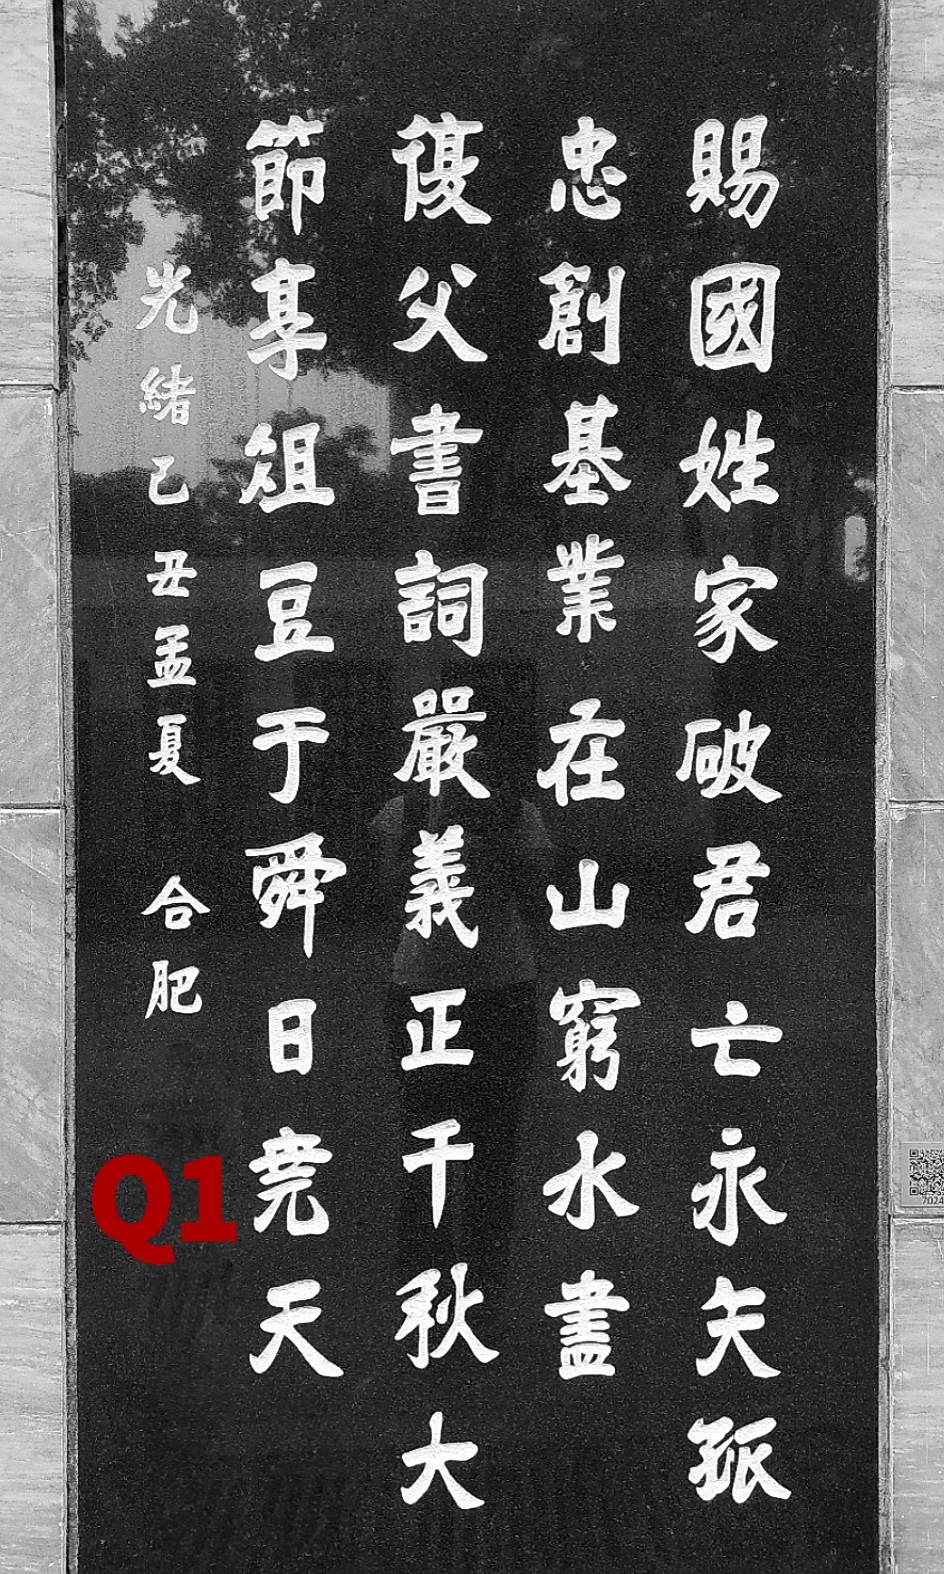 賜國姓家破君亡永矢孤
忠創基業在山窮水盡
復父書詞嚴義正千秋大
節享俎豆于舜日堯天
光緒乙丑孟夏 合肥
Q1
7024